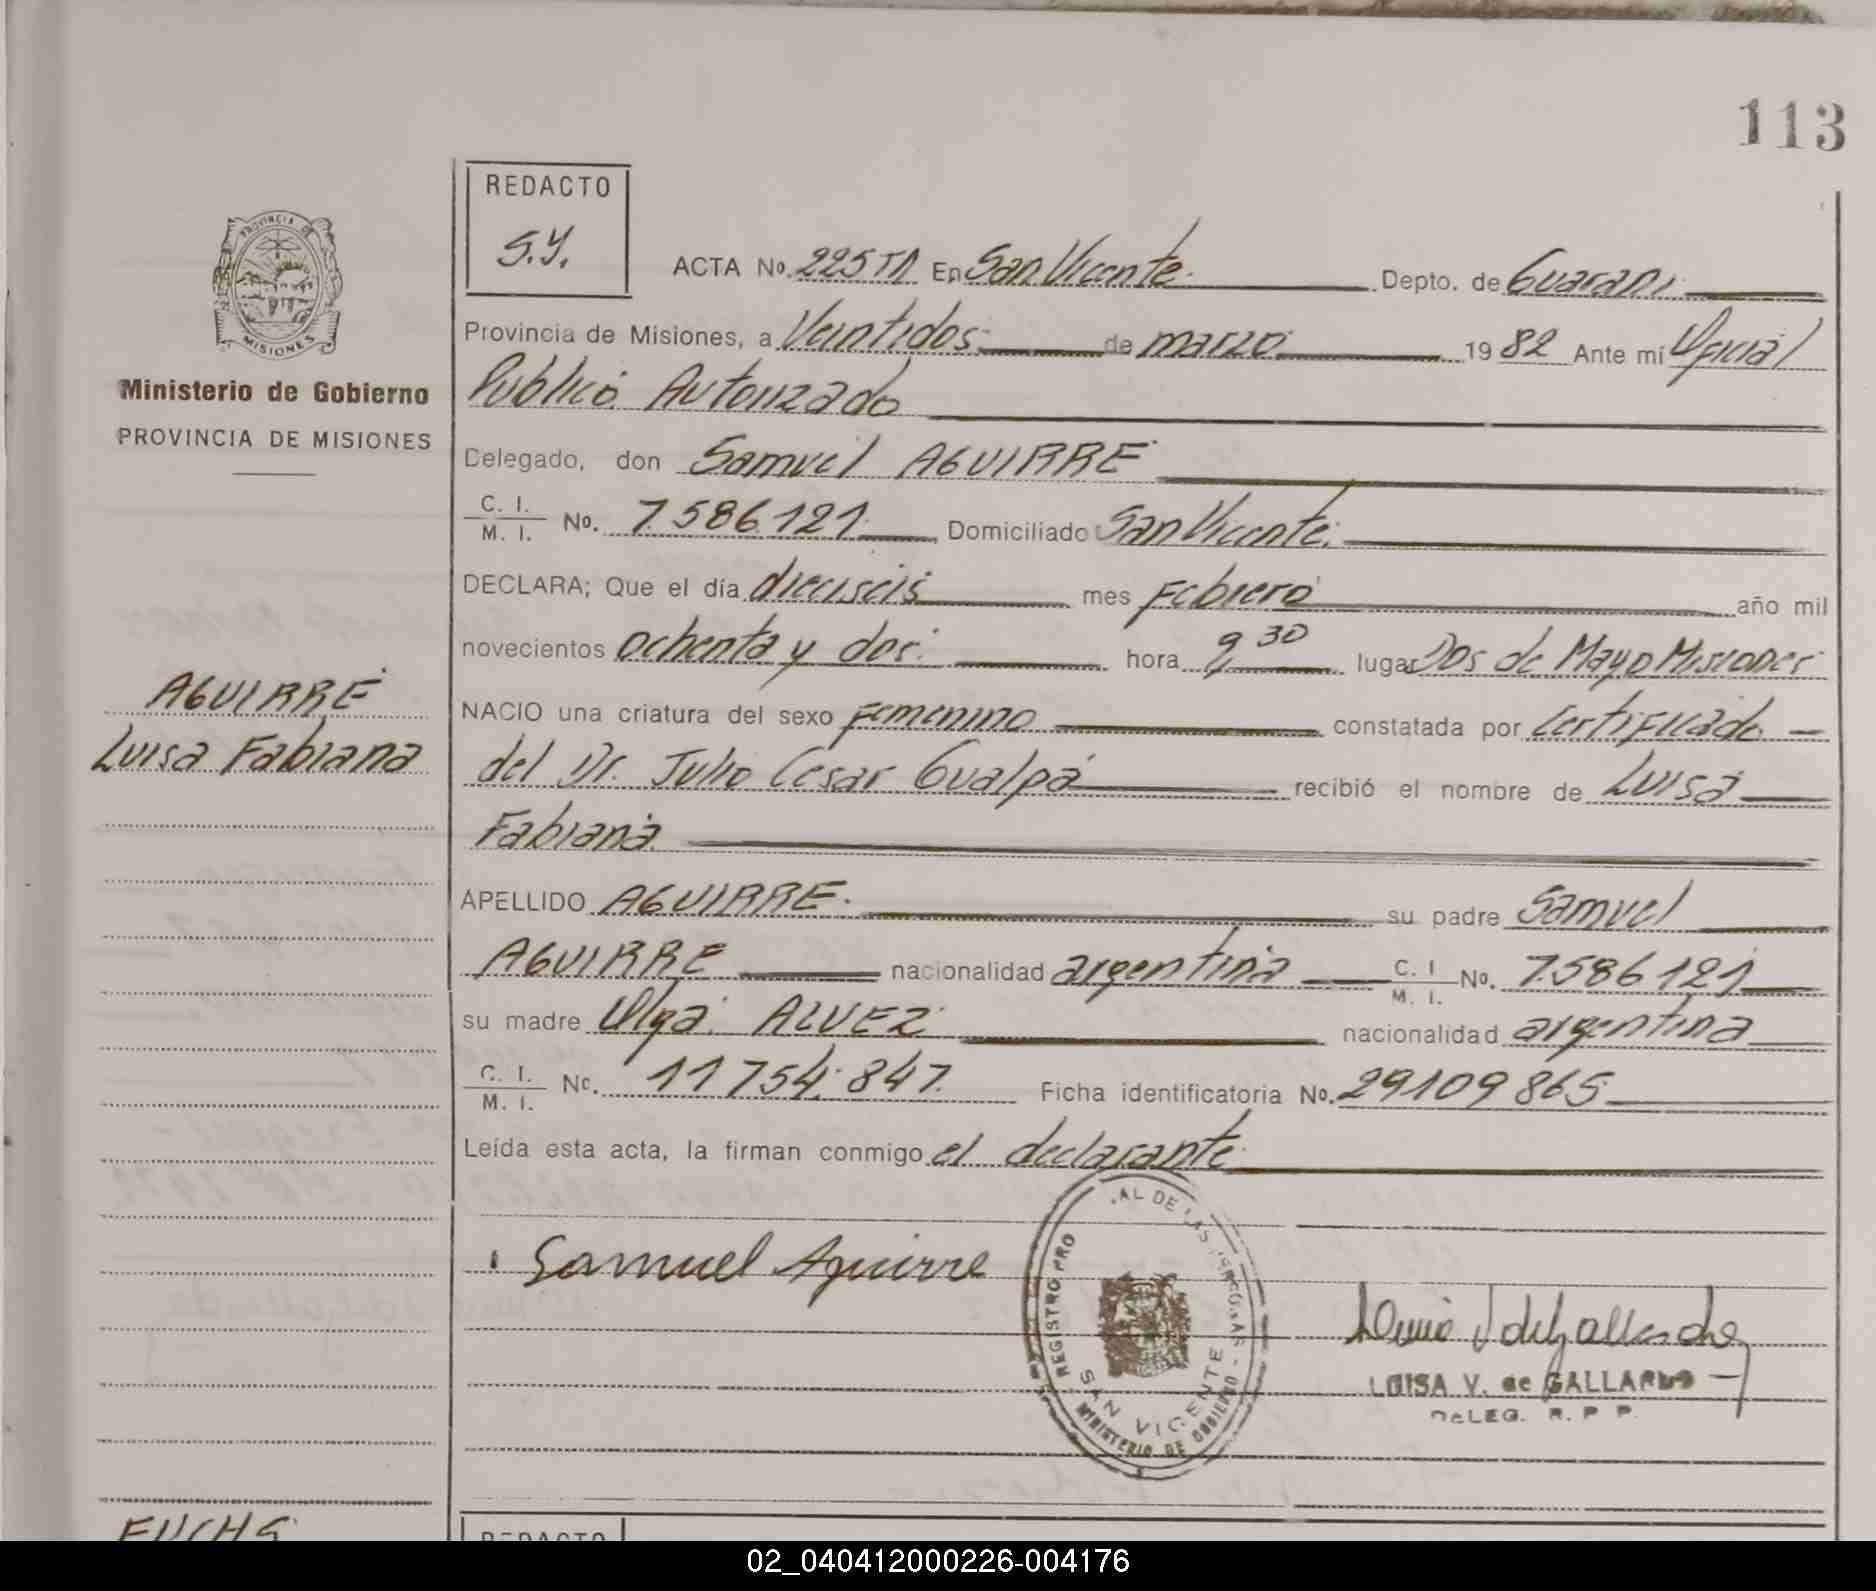 113
REDACTO
S.Y.
ACTA No. 225 TA En San Vicente. Depto. de Guaraní.
Provincia de Misiones, a Veintidos. de marzo 1982 Ante mí Oficial
Público Autorizado
Delegado, don Samuel AGUIRRE
C. I. / M. I. No. 7.586.121 Domiciliado San Vicente.
DECLARA; Que el día dieciseis mes Febrero año mil
novecientos ochenta y dos. hora 9,30 lugar Dos de Mayo Misiones
NACIO una criatura del sexo Femenino constatada por Certificado
del Dr. Julio Cesar Gualpa recibió el nombre de Luisa
Fabiana
APELLIDO AGUIRRE. su padre Samuel
AGUIRRE nacionalidad argentina C. I / M. I. No. 7.586.121
su madre Olga ALVEZ nacionalidad argentina
C. I. / M. I. No. 11.754.847 Ficha identificatoria No. 29109865
Leída esta acta, la firman conmigo el declarante
Samuel Aguirre
REGISTRO PRO AL DE LAS
SAN VICENTE
MINISTERIO DE GOBIERNO
LUISA V. de GALLARDO
DELEG. R. P. P.
PROVINCIA DE
MISIONES
Ministerio de Gobierno
PROVINCIA DE MISIONES
AGUIRRE
Luisa Fabiana
FUCHS
REDACTO
02_040412000226-004176